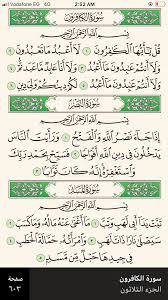 Vodafone EG 4G 2:52 AM
سُورَةُ الكَافِرُونَ
بِسْمِ اللَّهِ الرَّحْمَٰنِ الرَّحِيمِ
قُلْ يَٰٓأَيُّهَا الْكَٰفِرُونَ ١ لَآ أَعْبُدُ مَا تَعْبُدُونَ ٢
وَلَآ أَنتُمْ عَٰبِدُونَ مَآ أَعْبُدُ ٣ وَلَآ أَنَا۠ عَابِدٌ مَّا عَبَدتُّمْ ٤
وَلَآ أَنتُمْ عَٰبِدُونَ مَآ أَعْبُدُ ٥ لَكُمْ دِينُكُمْ وَلِيَ دِينِ ٦
سُورَةُ النَّصْرِ
بِسْمِ اللَّهِ الرَّحْمَٰنِ الرَّحِيمِ
إِذَا جَآءَ نَصْرُ اللَّهِ وَالْفَتْحُ ١ وَرَأَيْتَ النَّاسَ
يَدْخُلُونَ فِي دِينِ اللَّهِ أَفْوَاجًا ٢ فَسَبِّحْ بِحَمْدِ رَبِّكَ
وَاسْتَغْفِرْهُ إِنَّهُ كَانَ تَوَّابًا ٣
سُورَةُ المَسَدِ
بِسْمِ اللَّهِ الرَّحْمَٰنِ الرَّحِيمِ
تَبَّتْ يَدَآ أَبِي لَهَبٍ وَتَبَّ ١ مَآ أَغْنَىٰ عَنْهُ مَالُهُ وَمَا كَسَبَ ٢
سَيَصْلَىٰ نَارًا ذَاتَ لَهَبٍ ٣ وَامْرَأَتُهُ حَمَّالَةَ الْحَطَبِ ٤
فِي جِيدِهَا حَبْلٌ مِّن مَّسَدٍ ٥
سورة الكافرون صفحة
الجزء الثلاثون ٦٠٣